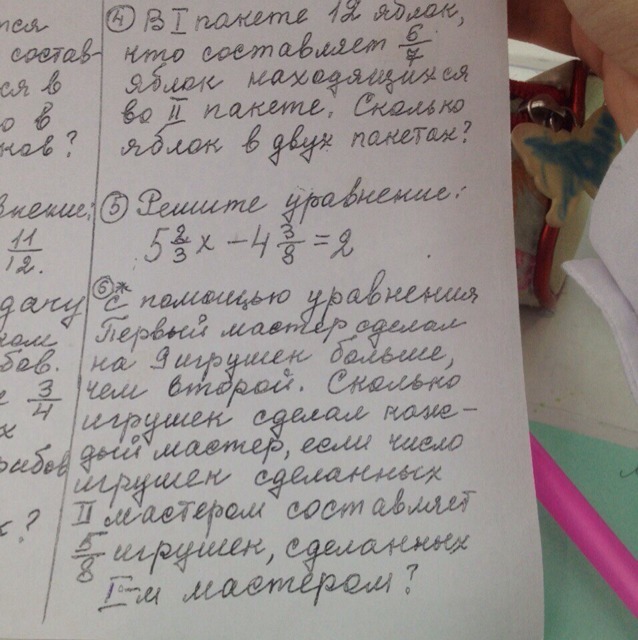 тся
состав-
ся в
о в
нов?
внение:
11/12.
дачу
ном
бов.
3/4
х
грибов
х?
④ В I пакете 12 яблок,
что составляет 6/7
яблок находящихся
во II пакете. Сколько
яблок в двух пакетах?
⑤ Решите уравнение:
5 2/3 x - 4 3/8 = 2
⑥* С помощью уравнения
Первый мастер сделал
на 9 игрушек больше,
чем второй. Сколько
игрушек сделал каж-
дый мастер, если число
игрушек сделанных
II мастером составляет
5/8 игрушек, сделанных
I-м мастером?